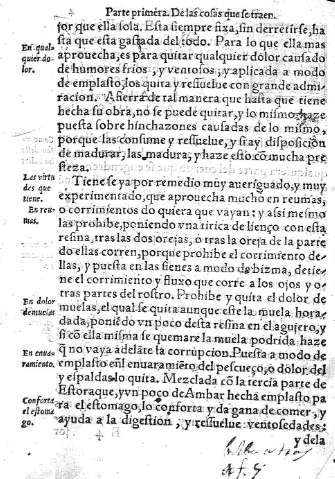 Parte primera. De las cosas que se traen.
jor que ella sola. Esta siempre fixa, sin derretirse, ha
sta que esta gastada del todo. Para lo que ella mas
En qual
quier do
lor.
aprouecha, es para quitar qualquier dolor causado
de humores frios, y ventosos, y aplicada a modo
de emplasto, los quita y resuelue con grande admi
racion. Aferra de tal manera que hasta que tiene
hecha su obra, no se puede quitar, y lo mismo haze
puesta sobre hinchazones causadas de lo mismo,
porque las consume y resuelue, y si ay disposicion
de madurar, las madura, y haze esto cō mucha pre
steza.
Las virtu
des que
tiene.
En reu-
mas.
Tiene se ya por remedio muy aueriguado, y muy
experimentado, que aprouecha mucho en reumas,
o corrimientos do quiera que vayan: y assi mesmo
las prohibe, poniendo vna tirica de lienço con esta
resina, tras las dos orejas, o tras la oreja de la parte
do ellas corren, porque prohibe el corrimiento de-
llas, y puesta en las sienes a modo de bizma, detie-
ne el corrimiento y fluxo que corre a los ojos y o-
tras partes del rostro. Prohibe y quita el dolor de
En dolor
de muelas
muelas, el qual se quita aunque este la muela hora-
dada, poniēdo vn poco desta resina en el agujero, y
si cō ella misma se quemare la muela podrida haze
En enua-
ramiento.
q̄ no vaya adelāte la corrupcion. Puesta a modo de
emplasto en el enuaramiēto del pescueço, o dolor del
y espaldas lo quita. Mezclada cō la tercia parte de
Conforta
el estoma
go.
Estoraque, y vn poco de Ambar hecha emplasto pa
ra el estomago, lo conforta y da gana de comer, y
ayuda a la digestion, y resuelue ventosedades:
y dela